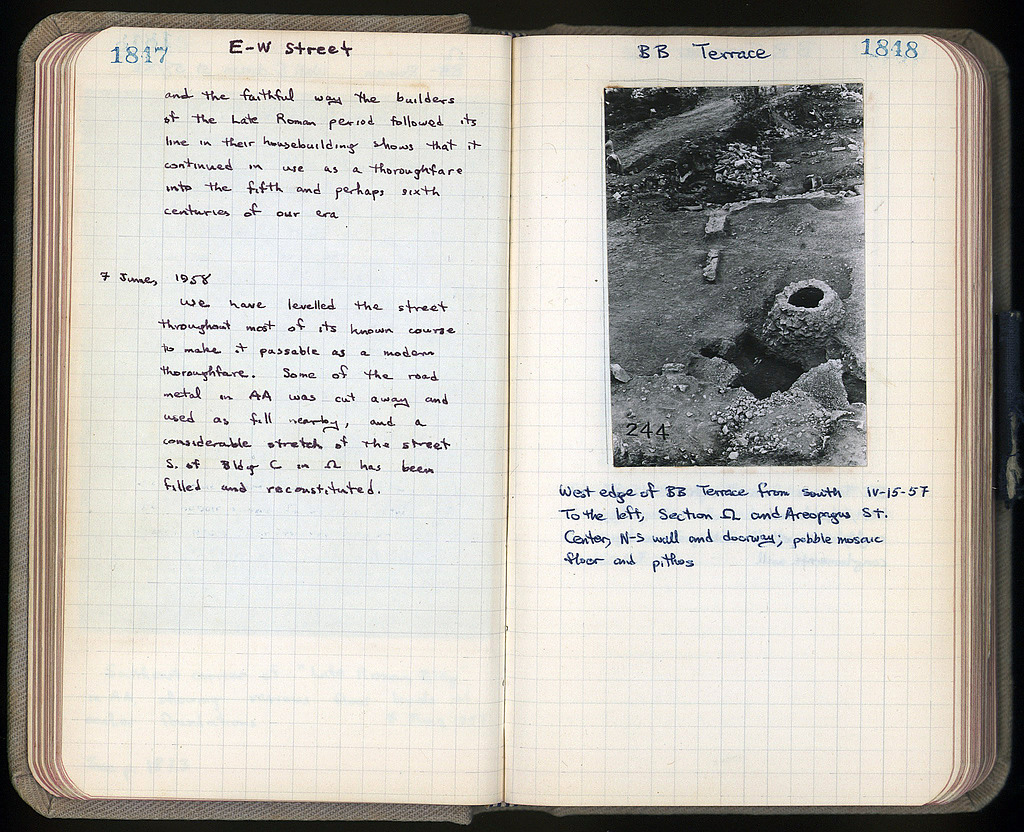 1847
E-W Street
and the faithful way the builders
of the Late Roman period followed its
line in their housebuilding shows that it
continued in use as a thoroughfare
into the fifth and perhaps sixth
centuries of our era
7 June, 1958
We have levelled the street
throughout most of its known course
to make it passable as a modern
thoroughfare. Some of the road
metal in AA was cut away and
used as fill nearby, and a
considerable stretch of the street
S. of Bldg C in Ω has been
filled and reconstituted.
BB Terrace
1848
244
West edge of BB Terrace from south IV-15-57
To the left, Section Ω and Areopagus St.
Center, N-S wall and doorway; pebble mosaic
floor and pithos